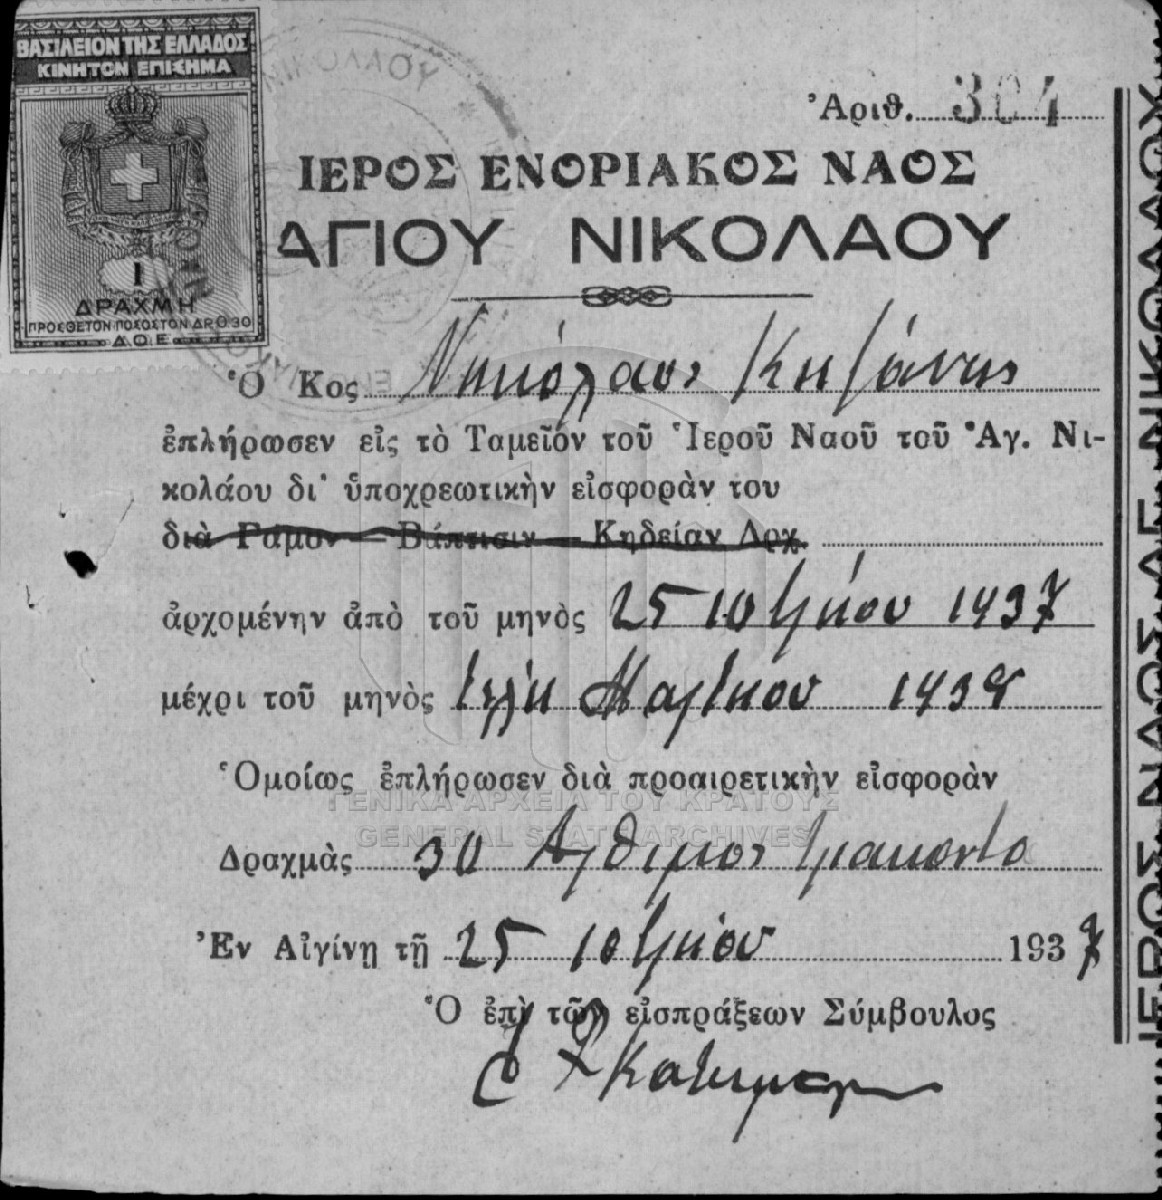 ΒΑΣΙΛΕΙΟΝ ΤΗΣ ΕΛΛΑΔΟΣ
ΚΙΝΗΤΟΝ ΕΠΙΣΗΜΑ
1
ΔΡΑΧΜΗ
ΠΡΟΣΘΕΤΟΝ ΠΟΣΟΣΤΟΝ ΔΡ 0 30
Δ.Ο.Ε.
ΝΙΚΟΛΑΟΥ
Ἀριθ. 304
ΙΕΡΟΣ ΕΝΟΡΙΑΚΟΣ ΝΑΟΣ
ΑΓΙΟΥ ΝΙΚΟΛΑΟΥ
Ὁ Κος Νικόλαος
ἐπλήρωσεν εἰς τὸ Ταμεῖον τοῦ Ἱεροῦ Ναοῦ τοῦ Ἁγ. Νι-
κολάου δι' ὑποχρεωτικὴν εἰσφορὰν του
διὰ Γάμον – Βάπτισιν – Κηδείαν Δρχ.
ἀρχομένην ἀπὸ τοῦ μηνὸς 25 1937
μέχρι τοῦ μηνὸς
Ὁμοίως ἐπλήρωσεν διὰ προαιρετικὴν εἰσφορὰν
ΓΕΝΙΚΑ ΑΡΧΕΙΑ ΤΟΥ ΚΡΑΤΟΥΣ
GENERAL STATE ARCHIVES
Δραχμὰς 30 τριάκοντα
Ἐν Αἰγίνῃ τῇ 25 1937
Ὁ ἐπὶ τῶν εἰσπράξεων Σύμβουλος
ΙΕΡΟΣ ΝΑΟΣ ΑΓ. ΝΙΚΟΛΑΟΥ